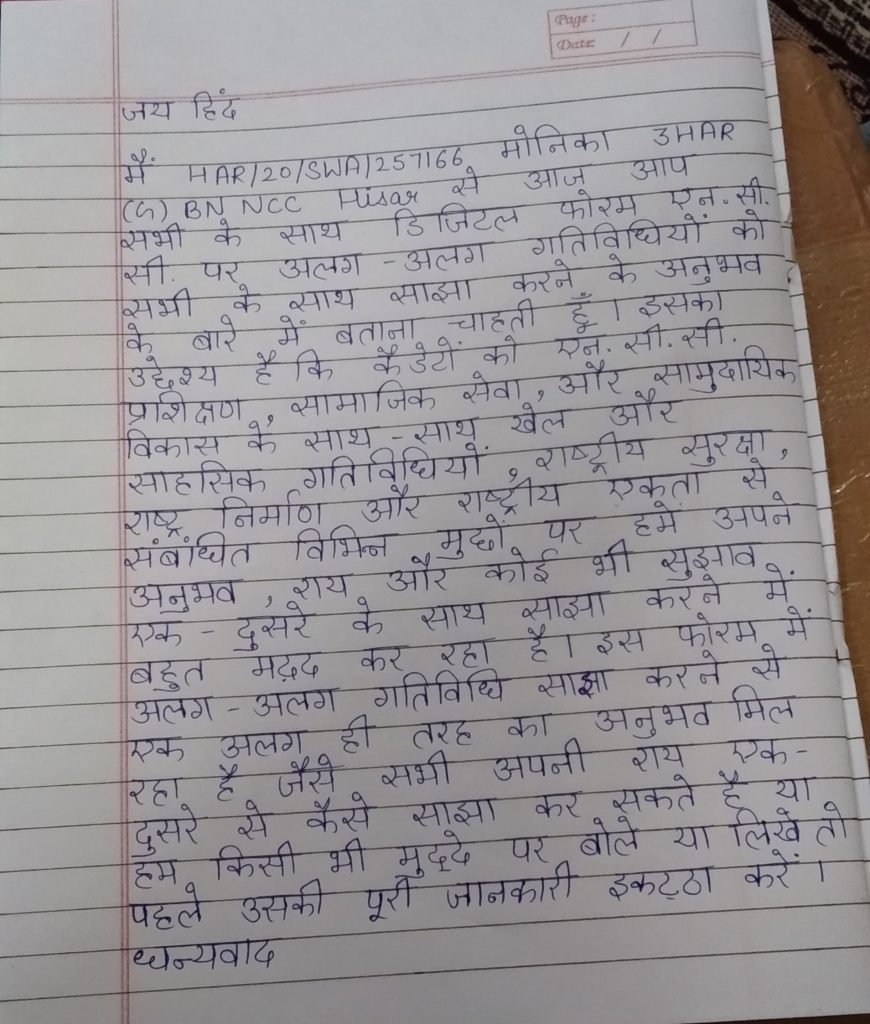 Page:
Date: / /
जय हिंद
मैं HAR/20/SWA/257166 मोनिका 3HAR
(G) BN NCC Hisar से आज आप
सभी के साथ डिजिटल फोरम एन.सी.
सी. पर अलग-अलग गतिविधियों को
सभी के साथ साझा करने के अनुभव
के बारे में बताना चाहती हूँ। इसका
उद्देश्य है कि कैडेटों को एन.सी.सी.
प्रशिक्षण, सामाजिक सेवा, और सामुदायिक
विकास के साथ-साथ खेल और
साहसिक गतिविधियों, राष्ट्रीय सुरक्षा,
राष्ट्र निर्माण और राष्ट्रीय एकता से
संबंधित विभिन्न मुद्दों पर हमें अपने
अनुभव, राय और कोई भी सुझाव
एक-दुसरे के साथ साझा करने में
बहुत मद्द कर रहा है। इस फोरम में
अलग-अलग गतिविधि साझा करने से
एक अलग ही तरह का अनुभव मिल
रहा है जैसे सभी अपनी राय एक-
दुसरे से कैसे साझा कर सकते है या
हम किसी भी मुद्दे पर बोले या लिखे तो
पहले उसकी पूरी जानकारी इकट्ठा करें।
धन्यवाद